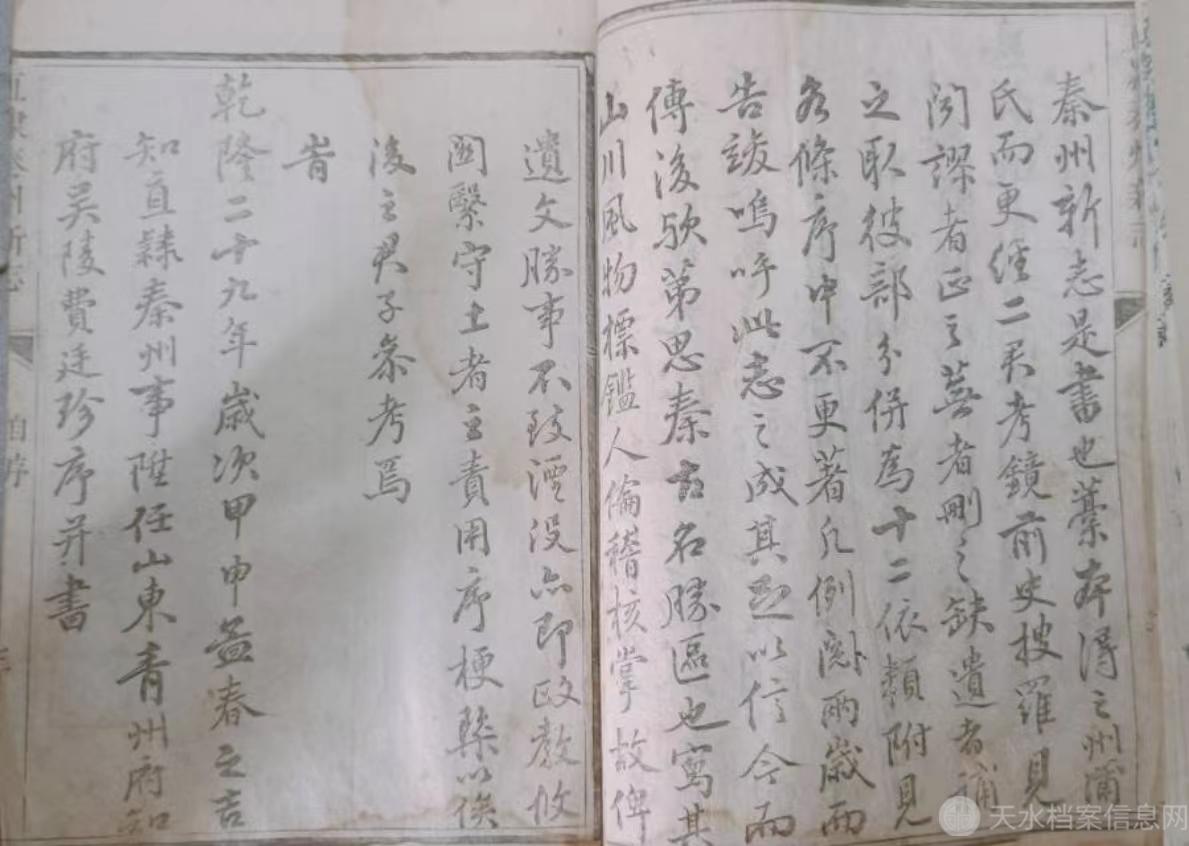 秦州新志是書也藁本得之州蒲
氏而更經二君考鏡前史搜羅見
聞謬者正之蕪者刪之缺遺者補
之取彼部分併爲十二依類附見
各條序中不更著凡例閱兩歲而
告竣嗚呼此志之成其以信今而
傳後歟第思秦古名勝區也寫其
山川風物標鑑人倫稽核掌故俾
遺文勝事不致湮没亦即政教攸
關繫守土者之責用序梗槩以俟
後之君子叅考焉
旹
乾隆二十九年歲次甲申孟春之吉
知直隸秦州事陞任山東青州府知
府吴陵費廷珍序并書
直隸秦州新志
自序
天水档案信息网